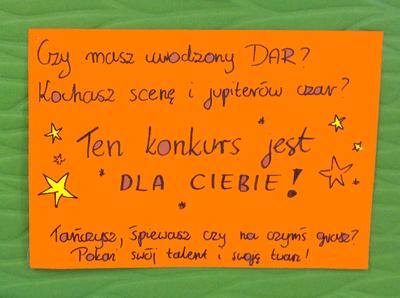 Czy masz wrodzony DAR?
Kochasz scenę i jupiterów czar?
Ten konkurs jest
DLA CIEBIE!
Tańczysz, śpiewasz czy na czymś grasz?
Pokaż swój talent i swoją twarz!